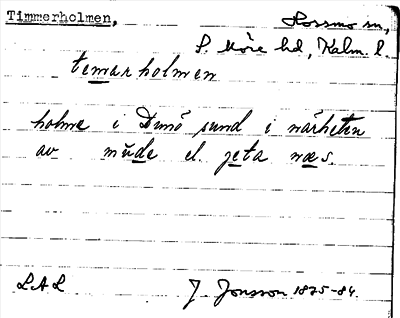 Timmerholmen,
Hossmo sn,
S. Möre hd, Kalm. l.
temarholmen
holme i Dunö sund i närheten
av müde el. jeta næs.
LAL
J. Jonsson 1875-84.